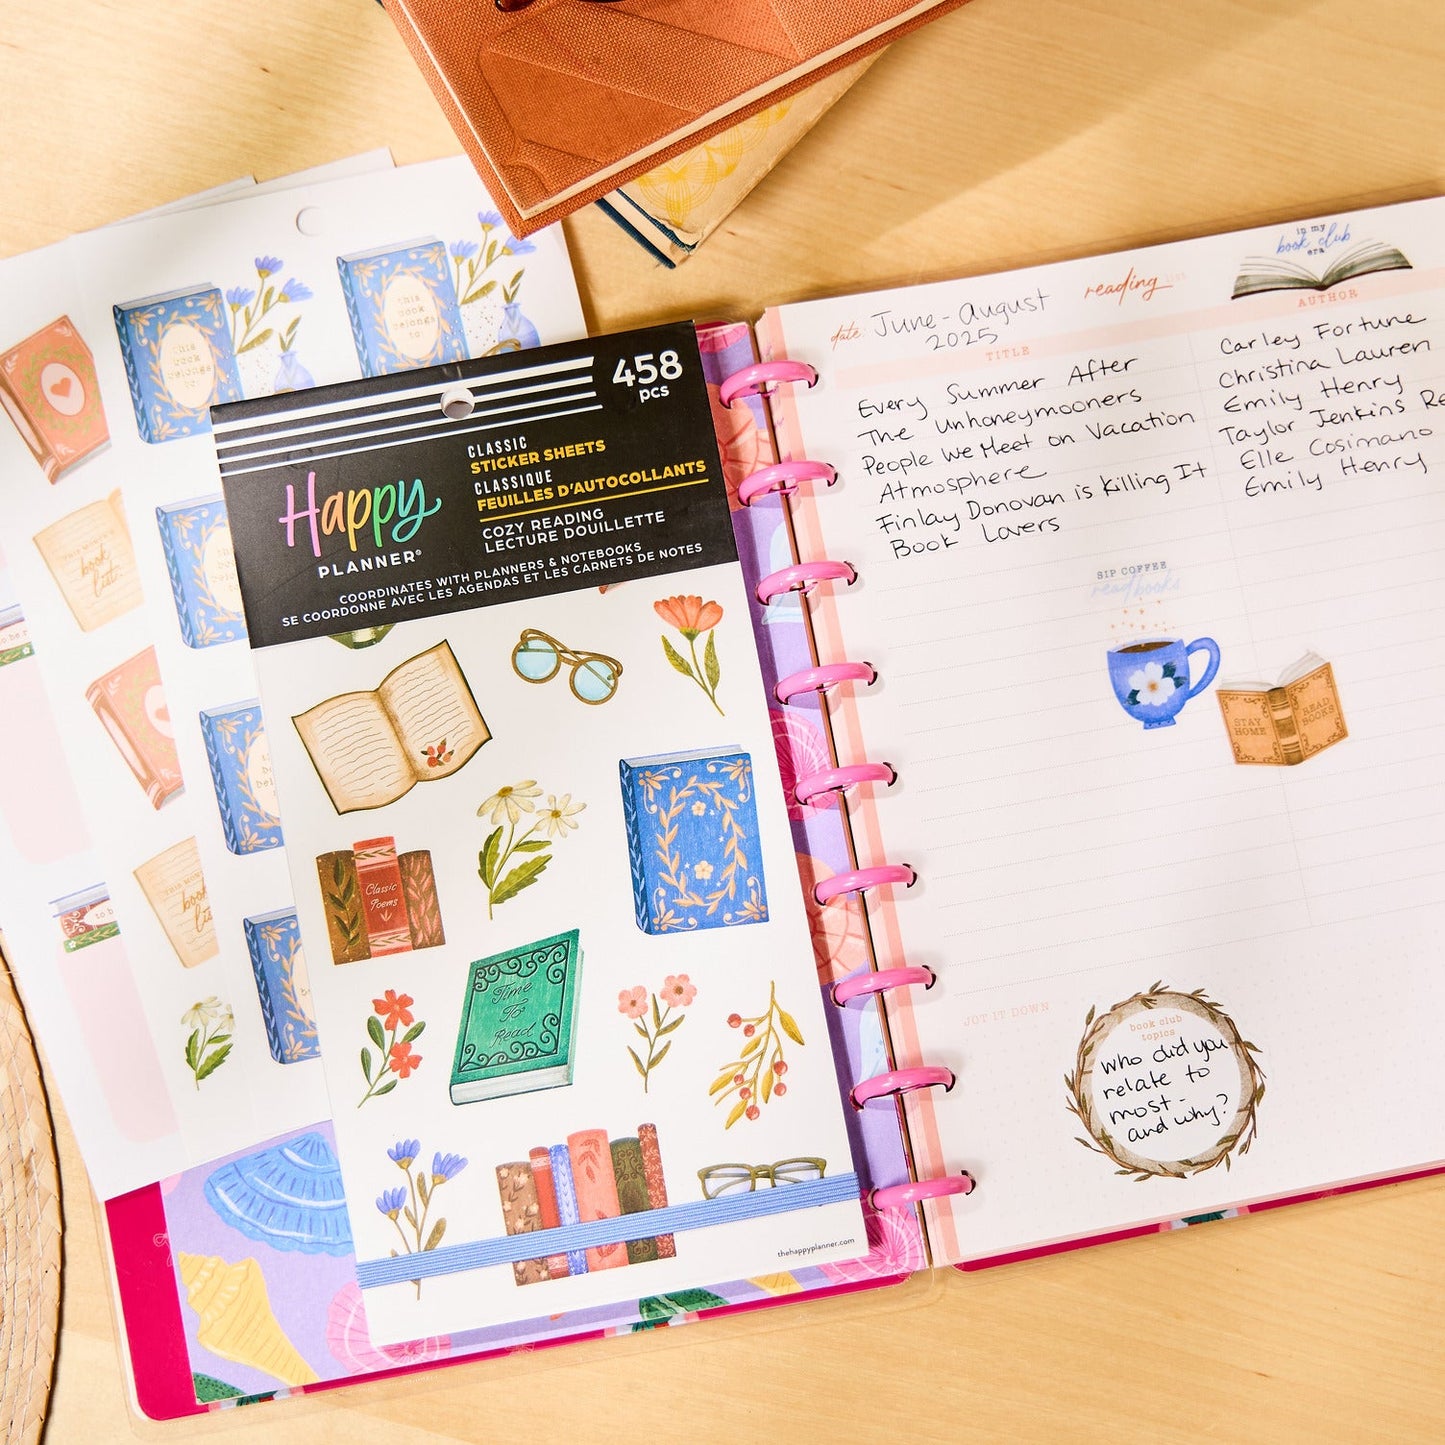 this
book
belongs
to:
this
book
belongs
to:
THIS MONTH'S
book
list.
to be r
THIS MON
book
lis
to b
458
pcs
CLASSIC
STICKER SHEETS
CLASSIQUE
FEUILLES D'AUTOCOLLANTS
Happy
PLANNER®
COZY READING
LECTURE DOUILLETTE
COORDINATES WITH PLANNERS & NOTEBOOKS
SE COORDONNE AVEC LES AGENDAS ET LES CARNETS DE NOTES
Classic
Poems
Time
To
Read
thehappyplanner.com
in my
book club
era
reading list
date: June - August
2025
TITLE
AUTHOR
Every Summer After
Carley Fortune
The Unhoneymooners
Christina Lauren
People We Meet on Vacation
Emily Henry
Atmosphere
Taylor Jenkins Re
Finlay Donovan is Killing It
Elle Cosimano
Book Lovers
Emily Henry
SIP COFFEE
read books
STAY
HOME
READ
BOOKS
JOT IT DOWN
book club
topics
who did you
relate to
most -
and why?